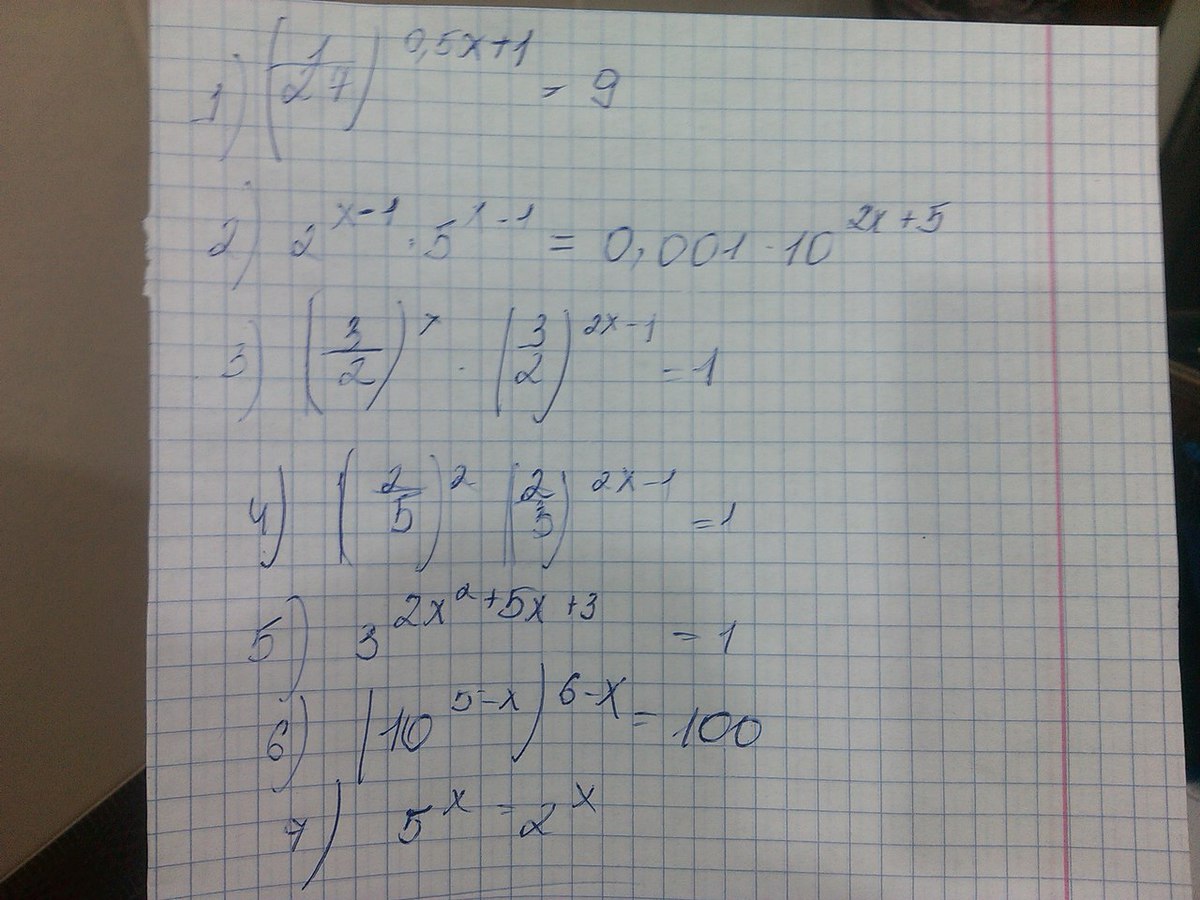 1) (1/27)^(0,5x+1) = 9
2) 2^(x-1) · 5^(x-1) = 0,001 · 10^(2x+5)
3) (3/2)^x · (3/2)^(2x-1) = 1
4) (2/5)^2 (2/5)^(2x-1) = 1
5) 3^(2x^2+5x+3) = 1
6) (10^(5-x))^(6-x) = 100
7) 5^x = 2^x